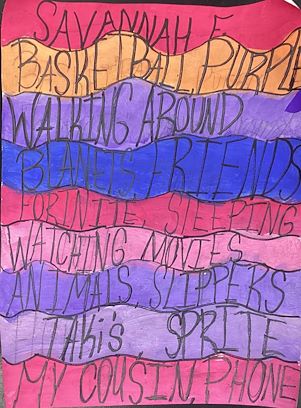 SAVANNAH F.
BASKETBALL, PURPLE
WALKING AROUND
BLANETS, FRIENDS
FORINITE, SLEEPING
WATCHING MOVIES
ANIMALS, SLIPPERS
TAKi's, SPRITE
MY COUSIN, PHONE